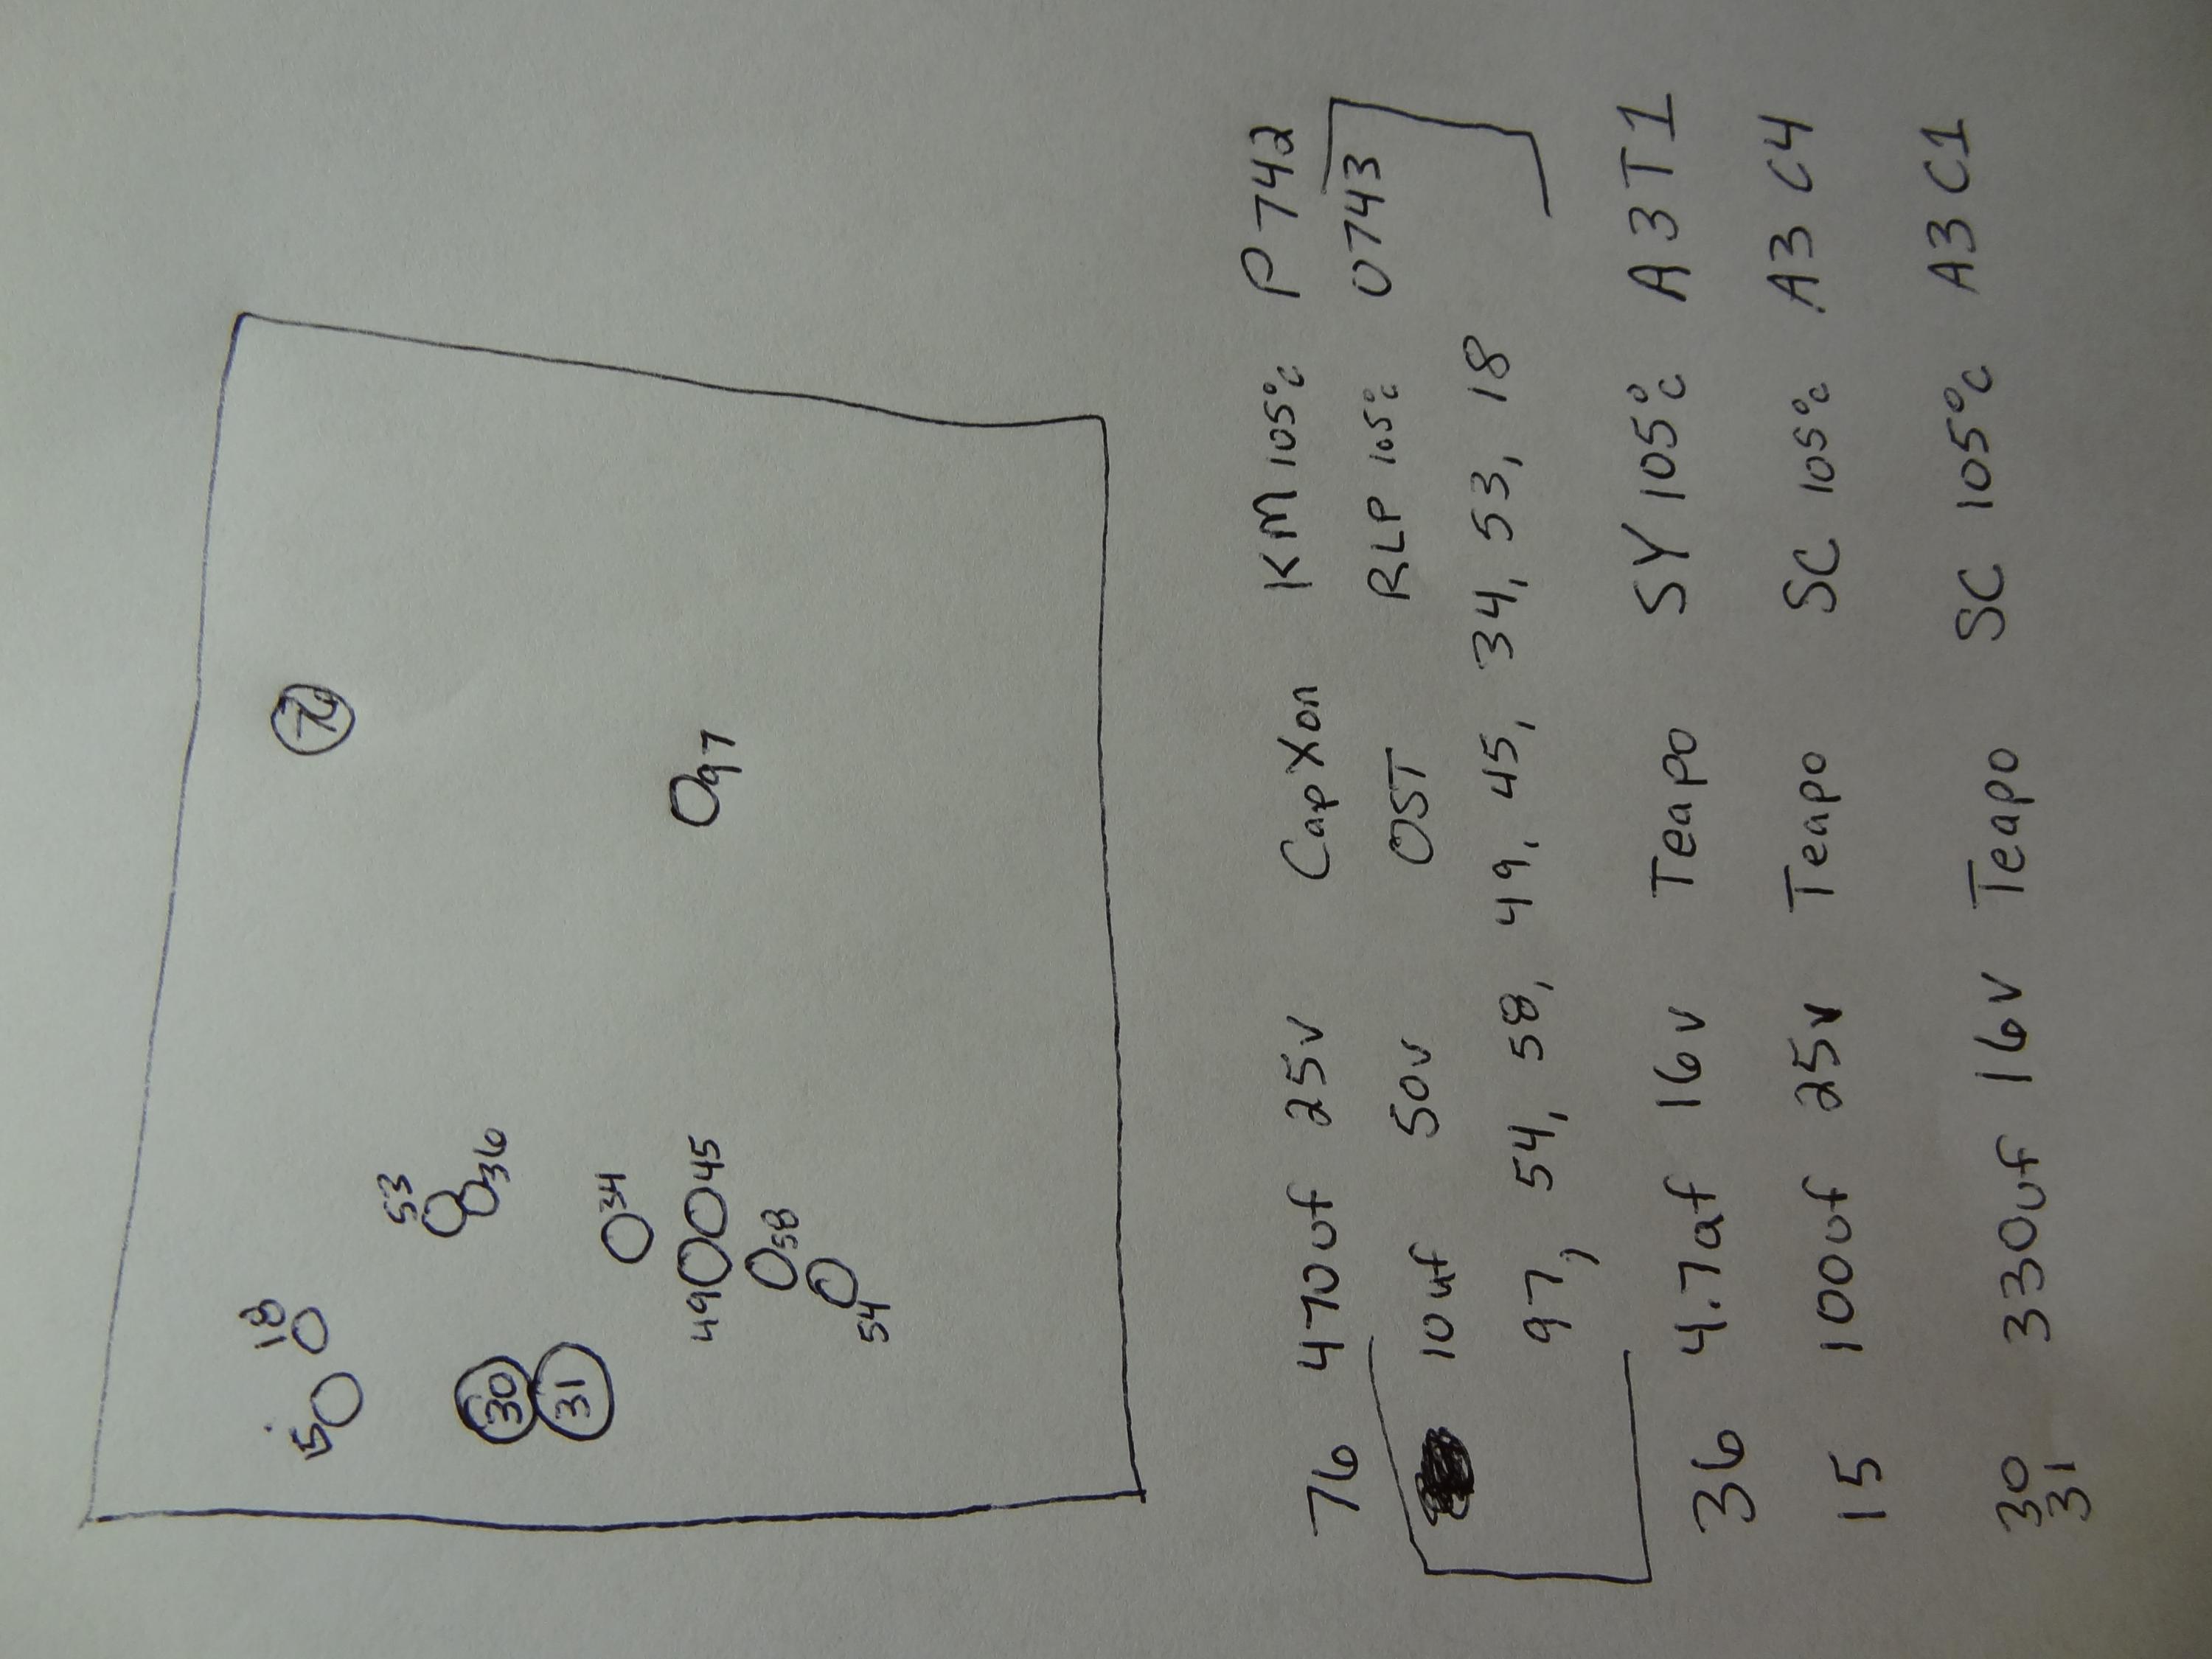 76
97
53
36
34
45
49
58
54
18
15
30
31
76 470uf 25v CapXon KM 105°c P742
10uf 50v OST RLP 105°c 0743
97, 54, 58, 49, 45, 34, 53, 18
36 4.7uf 16v Teapo SY 105°c A3T1
15 100uf 25v Teapo SC 105°c A3C4
30 330uf 16v Teapo SC 105°c A3C1
31